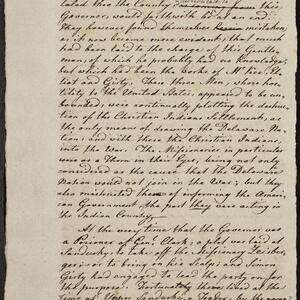 lated this the Country
Governor, would fall with be at an end:
They having found themselves mistaken,
as it now became more evident, that much
had been laid to the charge of this Gentle-
man, of which he probably had no knowledge,
but which had been the works of McKee, El-
liot and Girty. These three Men, whose hos-
tility to the United States, appeared to be un-
bounded, were continually plotting the destruc-
tion of the Christian Indians Settlements, as
the only means of drawing the Delaware Na-
tion: and with these the Christian Indians,
into the War. The Missionaries in particular
were as a Thorn in their Eye, being not only
considered as the cause that the Delaware
Nation would not join in the War; but they
also mistrusted them of informing the Ameri-
can Government the part they were acting in
the Indian Country.
At the very time that the Governor was
a Prisoner of Genl. Clark; a plot was laid at
Sandusky, to take off the Missionary Zeisber-
ger or to bring in his scalp: and Simon
Girty had engaged to lead the party on for
the purpose. Fortunately there lived at the
Time at Upper Sandusky, a Trader, by the name